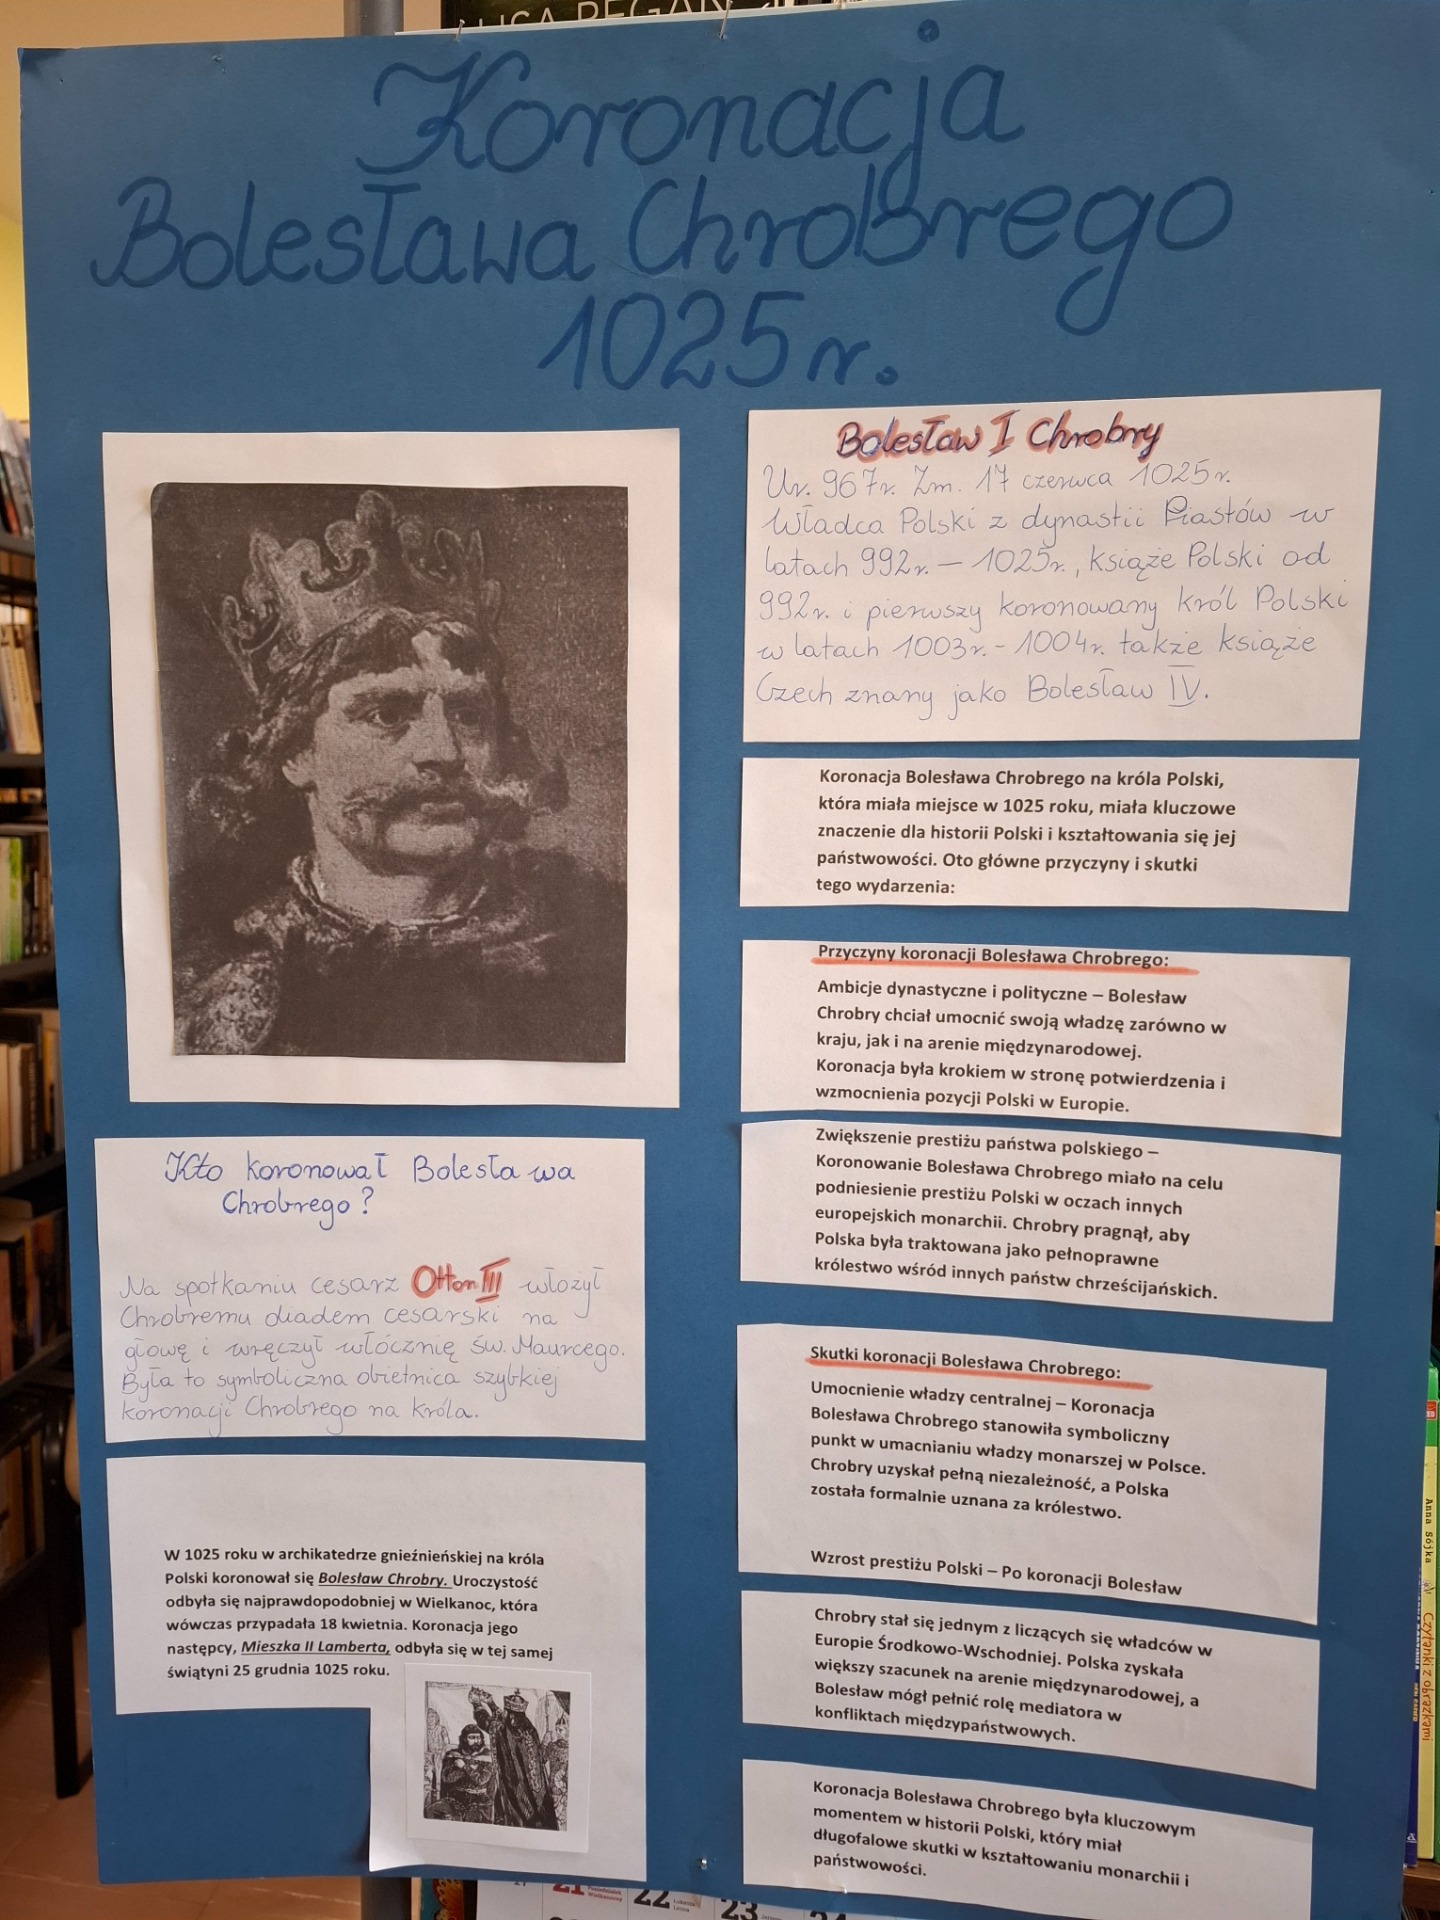 LISA REGAN
Koronacja
Bolesława Chrobrego
1025 r.
Bolesław I Chrobry
Ur. 967r. Zm. 17 czerwca 1025 r.
Władca Polski z dynastii Piastów w
latach 992r. – 1025r., książe Polski od
992r. i pierwszy koronowany król Polski
w latach 1003r. - 1004r. także książe
Czech znany jako Bolesław IV.
Koronacja Bolesława Chrobrego na króla Polski,
która miała miejsce w 1025 roku, miała kluczowe
znaczenie dla historii Polski i kształtowania się jej
państwowości. Oto główne przyczyny i skutki
tego wydarzenia:
Przyczyny koronacji Bolesława Chrobrego:
Ambicje dynastyczne i polityczne – Bolesław
Chrobry chciał umocnić swoją władzę zarówno w
kraju, jak i na arenie międzynarodowej.
Koronacja była krokiem w stronę potwierdzenia i
wzmocnienia pozycji Polski w Europie.
Zwiększenie prestiżu państwa polskiego –
Koronowanie Bolesława Chrobrego miało na celu
podniesienie prestiżu Polski w oczach innych
europejskich monarchii. Chrobry pragnął, aby
Polska była traktowana jako pełnoprawne
królestwo wśród innych państw chrześcijańskich.
Skutki koronacji Bolesława Chrobrego:
Umocnienie władzy centralnej – Koronacja
Bolesława Chrobrego stanowiła symboliczny
punkt w umacnianiu władzy monarszej w Polsce.
Chrobry uzyskał pełną niezależność, a Polska
została formalnie uznana za królestwo.
Wzrost prestiżu Polski – Po koronacji Bolesław
Chrobry stał się jednym z liczących się władców w
Europie Środkowo-Wschodniej. Polska zyskała
większy szacunek na arenie międzynarodowej, a
Bolesław mógł pełnić rolę mediatora w
konfliktach międzypaństwowych.
Koronacja Bolesława Chrobrego była kluczowym
momentem w historii Polski, który miał
długofalowe skutki w kształtowaniu monarchii i
państwowości.
Kto koronował Bolesława
Chrobrego?
Na spotkaniu cesarz Otton III włożył
Chrobremu diadem cesarski na
głowę i wręczył włócznię św. Maurcego.
Była to symboliczna obietnica szybkiej
koronacji Chrobrego na króla.
W 1025 roku w archikatedrze gnieźnieńskiej na króla
Polski koronował się Bolesław Chrobry. Uroczystość
odbyła się najprawdopodobniej w Wielkanoc, która
wówczas przypadała 18 kwietnia. Koronacja jego
następcy, Mieszka II Lamberta, odbyła się w tej samej
świątyni 25 grudnia 1025 roku.
21 Poniedziałek Wielkanocny
22
23
Anna Sójka
Czytanki z obrazkami